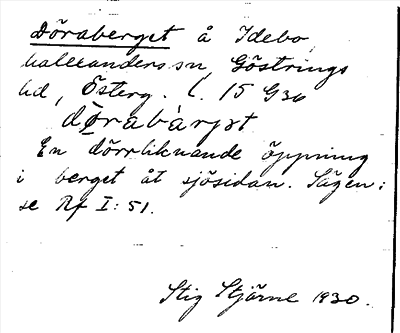 Döraberget å Idebo,
halleanders sn, Göstrings
hd, Österg. l. 15 G36
dørabàrjət
En dörrliknande öppning
i berget åt sjösidan. Sägen:
se Rf I:51.
Stig Stjärne 1930.